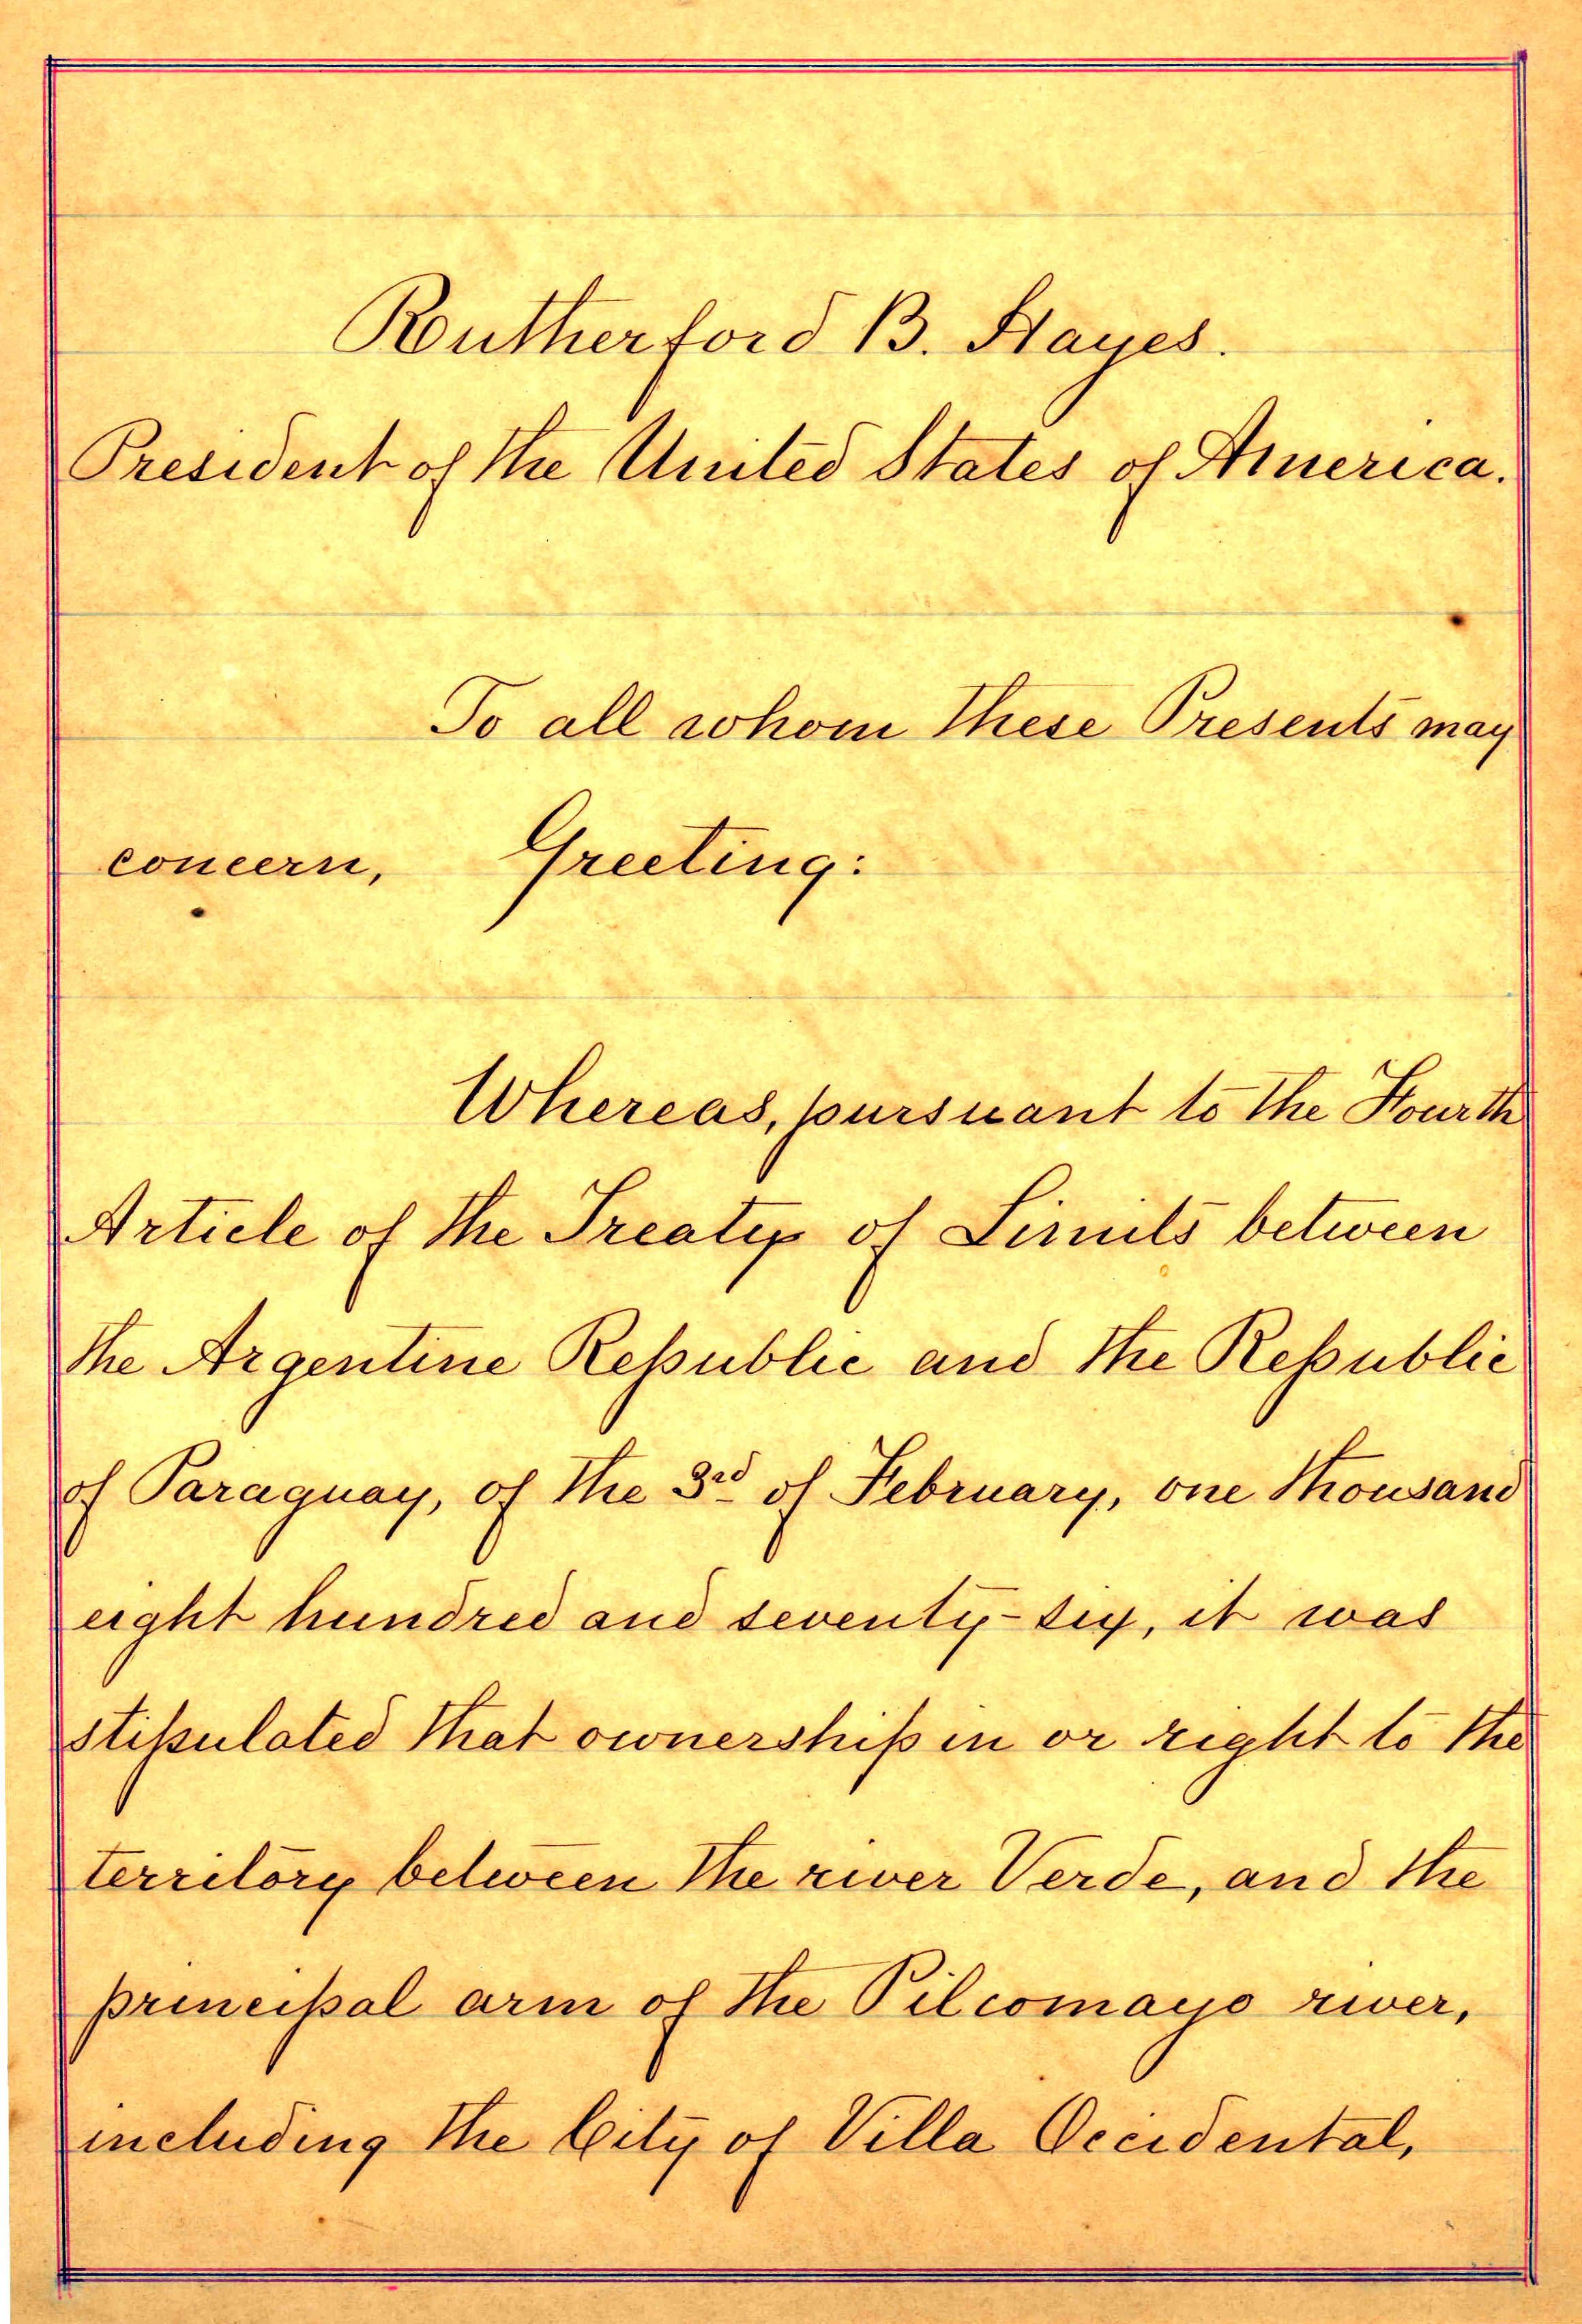 Rutherford B. Hayes.
President of the United States of America.
To all whom these Presents may
concern, Greeting:
Whereas, pursuant to the Fourth
Article of the Treaty of Limits between
the Argentine Republic and the Republic
of Paraguay, of the 3rd of February, one thousand
eight hundred and seventy-six, it was
stipulated that ownership in or right to the
territory between the river Verde, and the
principal arm of the Pilcomayo river,
including the City of Villa Occidental,